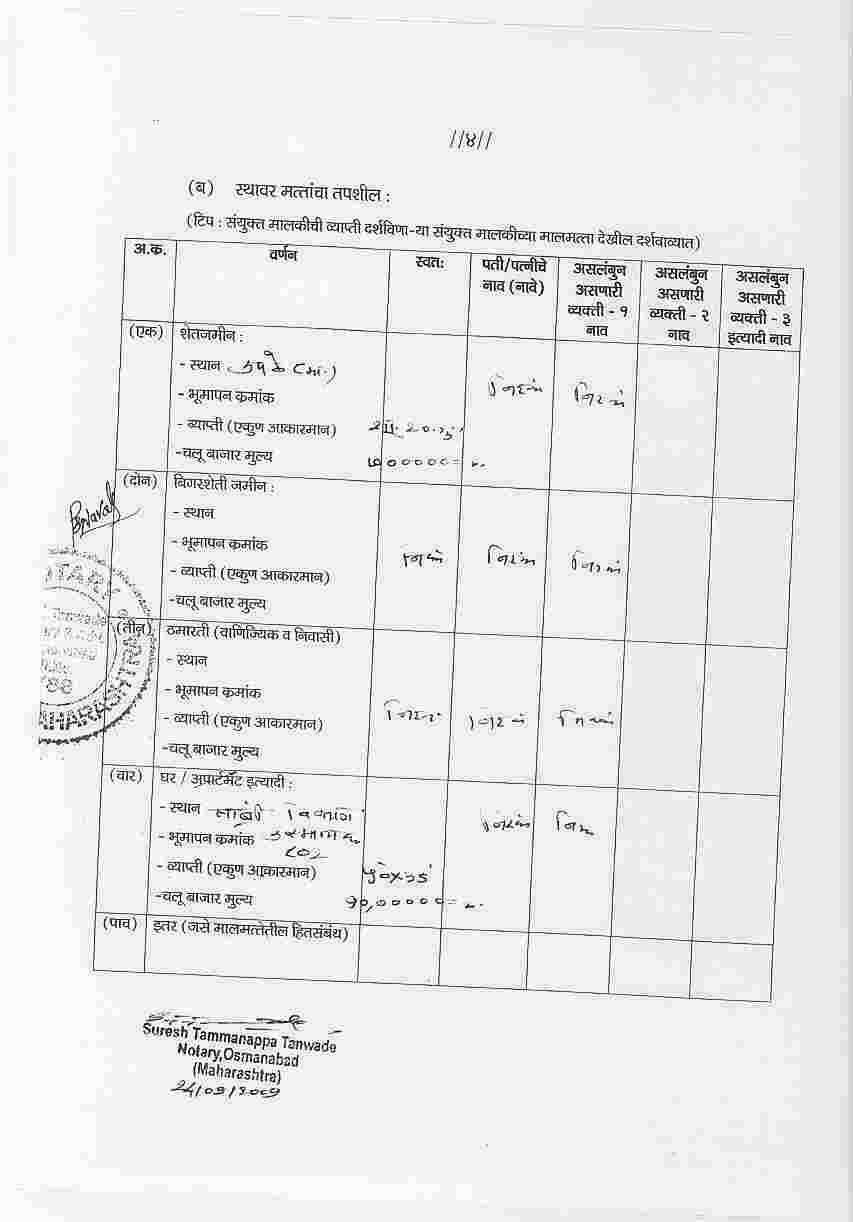 //४//
(ब) स्थावर मत्तांचा तपशील :
(टिप : संयुक्त मालकीची व्याप्ती दर्शविणा-या संयुक्त मालकीच्या मालमत्ता देखील दर्शवाव्यात)
अ.क. वर्णन स्वतः पती/पत्नीचे नाव (नावे) असलंबुन असणारी व्यक्ती - १ नाव असलंबुन असणारी व्यक्ती - २ नाव असलंबुन असणारी व्यक्ती - ३ इत्यादी नाव
(एक) शेतजमीन :
- स्थान
निरंक निरंक
- भूमापन क्रमांक
- व्याप्ती (एकुण आकारमान)
-चलू बाजार मुल्य
(दोन) बिगरशेती जमीन :
- स्थान
- भूमापन क्रमांक निरंक निरंक निरंक
- व्याप्ती (एकुण आकारमान)
-चलू बाजार मुल्य
(तीन) ठमारती (वाणिज्यिक व निवासी)
- स्थान
- भूमापन क्रमांक निरंक निरंक निरंक
- व्याप्ती (एकुण आकारमान)
-चलू बाजार मुल्य
(चार) घर / अपार्टमेंट इत्यादी :
- स्थान
निरंक निरंक
- भूमापन क्रमांक
- व्याप्ती (एकुण आकारमान)
-चलू बाजार मुल्य १०,०००००=
(पाच) इतर (जसे मालमत्तेतील हितसंबंध)
Suresh Tammanappa Tanwade
Notary,Osmanabad
(Maharashtra)
24/09/2009